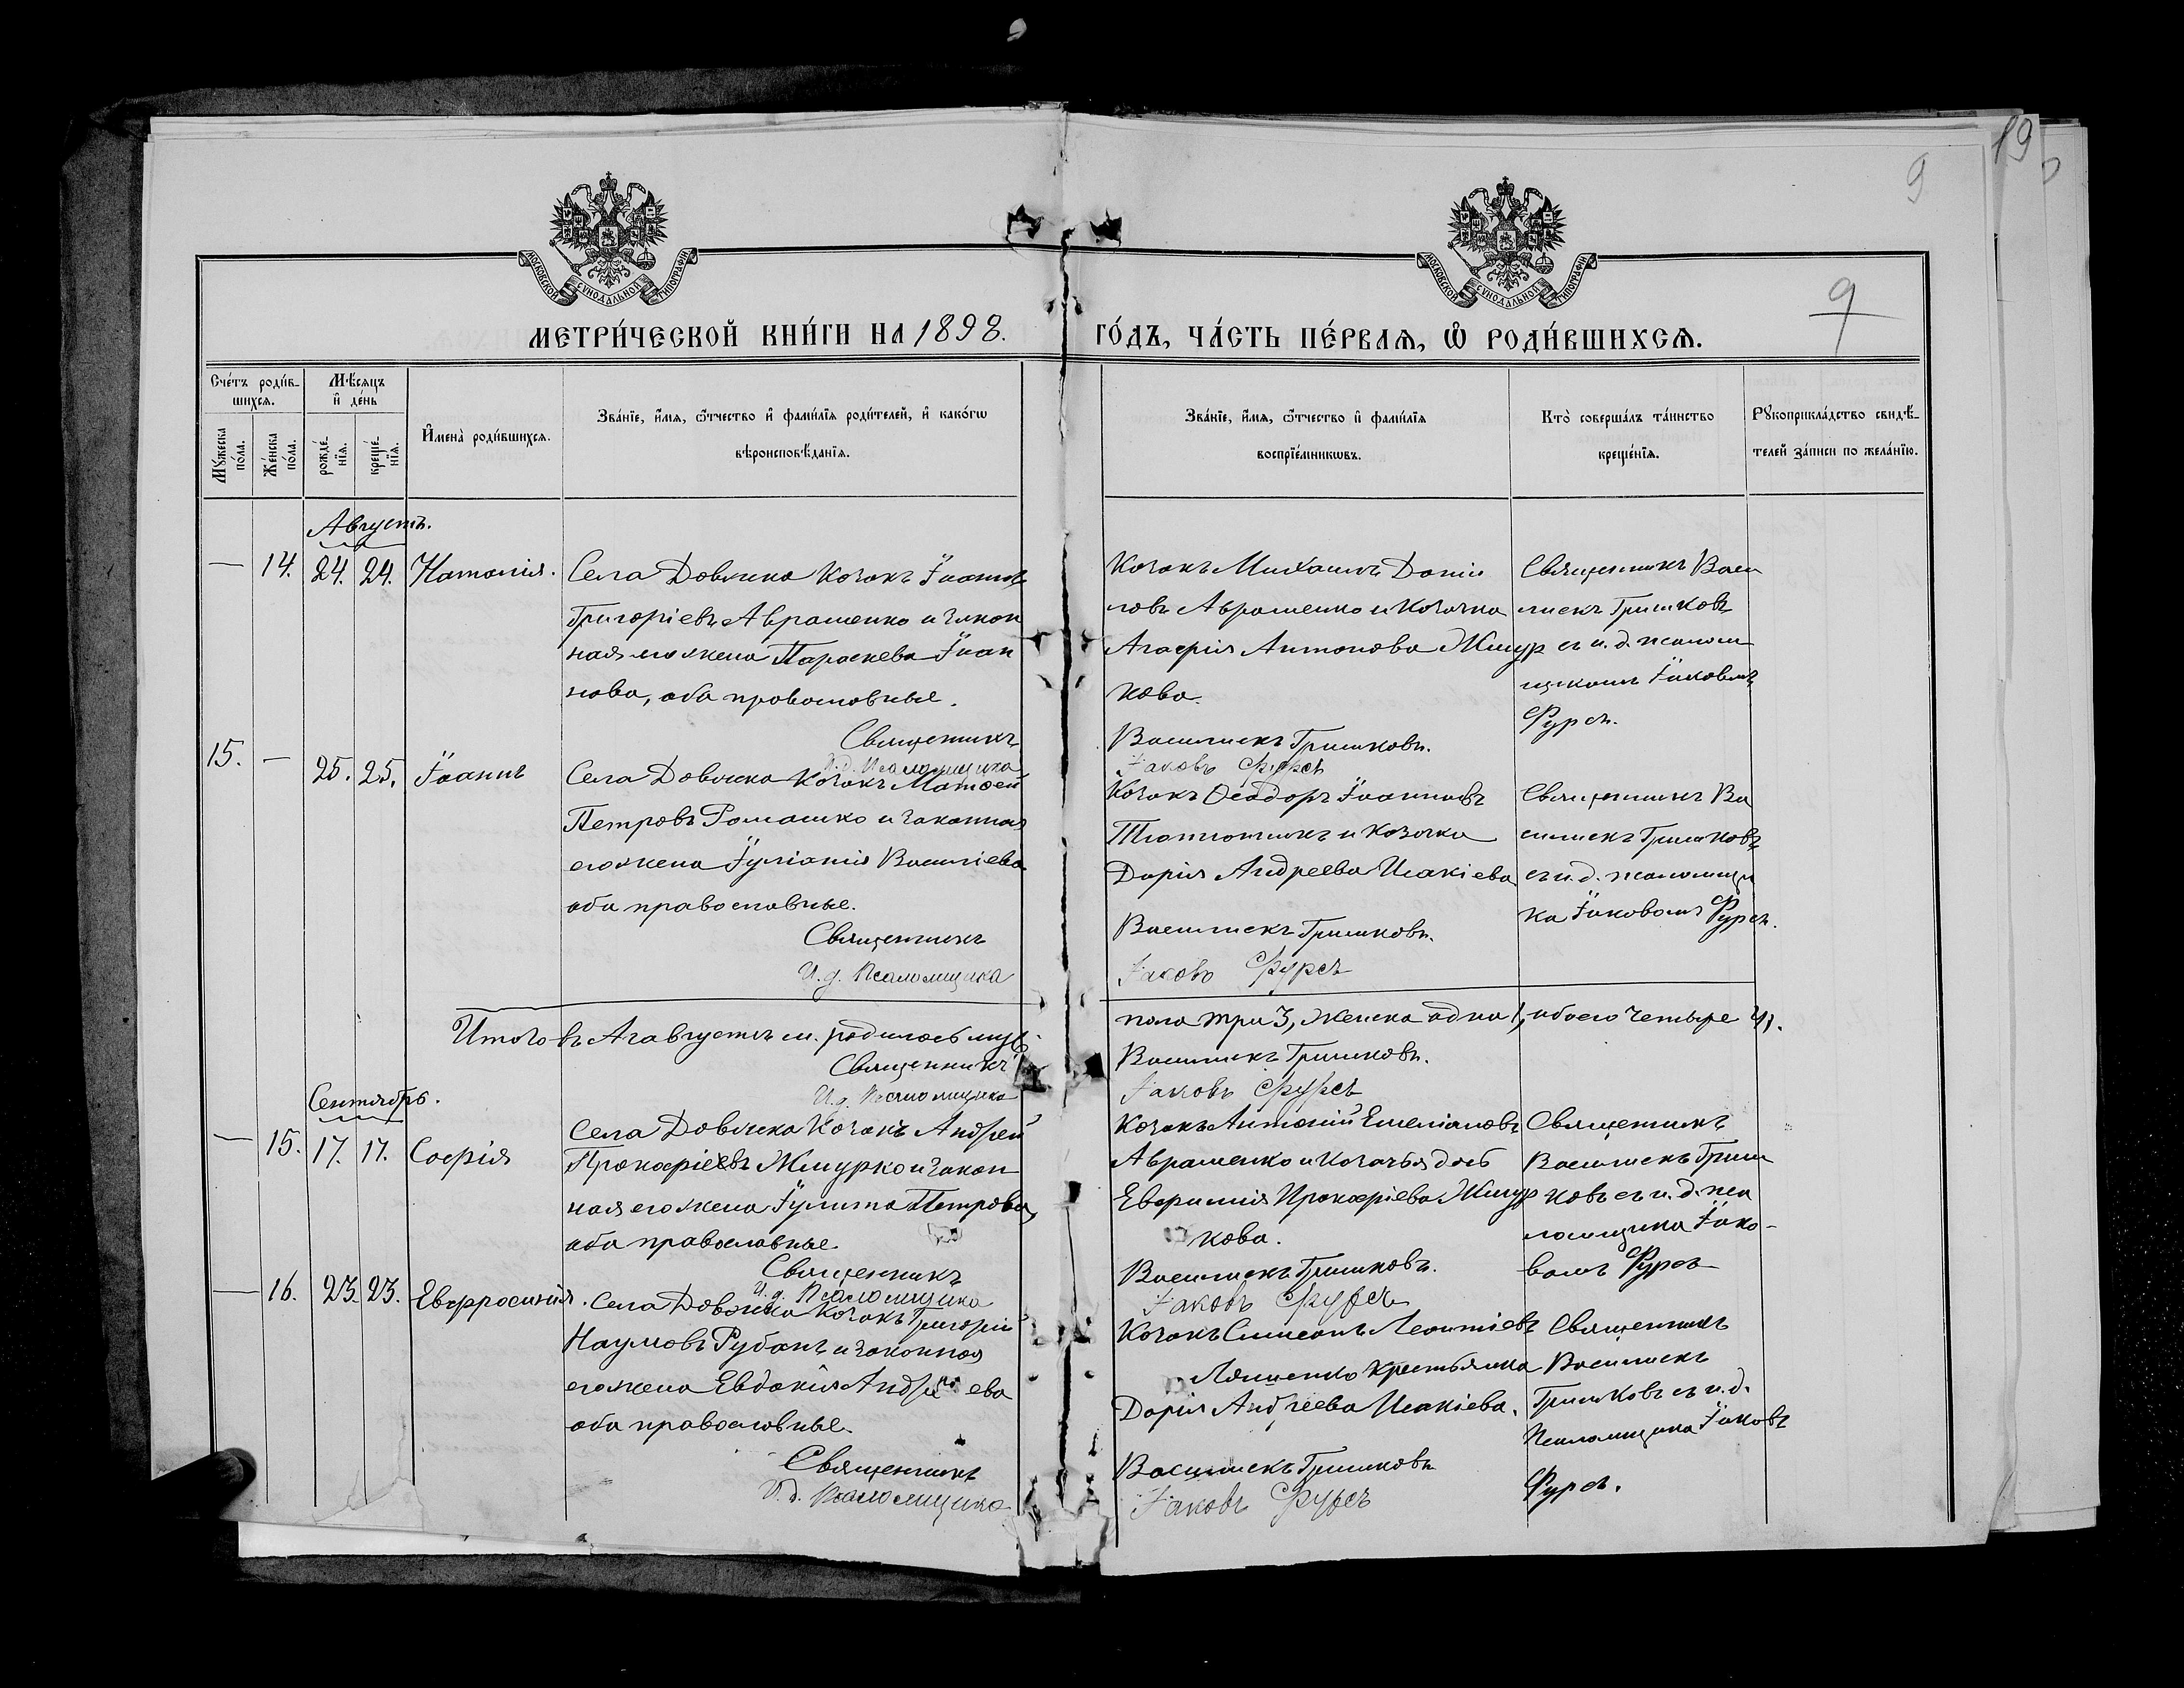 9
19
9
МОСКОВСКОЙ СѴНОДАЛЬНОЙ ТИПОГРАФІИ
МОСКОВСКОЙ СѴНОДАЛЬНОЙ ТИПОГРАФІИ
МЕТРИ́ЧЕСКОЙ КНИ́ГИ НА 1898. ГО́ДЪ, ЧА́СТЬ ПЕ́РВАѦ, Ѿ РОДИ́ВШИХСѦ.
Сче́тъ роди́в-
шихсѧ.
Мѣ́сѧцъ
и҆ де́нь
Мꙋ́жеска
по́ла.
Же́нска
по́ла.
рожде́-
нїѧ.
креще́-
нїѧ.
И҆мена̀ роди́вшихсѧ.
Зва́нїе, и҆́мѧ, ѻ҆́тчество и҆ фами́лїѧ роди́телей, и҆ како́гѡ
вѣроисповѣ́данїѧ.
Зва́нїе, и҆́мѧ, ѻ҆́тчество и҆ фами́лїѧ
воспрїе́мникѡвъ.
Кто̀ соверша́лъ та́инство
креще́нїѧ.
Рꙋкоприкла́дство свидѣ́-
телей за́писи по жела́нїю.
Августъ.
— 14. 24. 24. Наталія.
Села Довжика козакъ Іоаннъ
Григоріевъ Авраменко и закон
ная его жена Параскева Іоан
нова, оба православные.
Священникъ
И.д. Псаломщика
Козакъ Михаилъ Дании
ловъ Авраменко и козачка
Агафія Антонова Жмур
кова.
Василискъ Гришковъ.
Іаковъ Фурсъ
Священникъ Васи
лискъ Гришковъ
съ и.д. псалом
щикомъ Іаковомъ
Фурсъ.
15. — 25. 25. Іоаннъ
Села Довжика козакъ Матѳей
Петровъ Ромашко и законная
его жена Іуліанія Василіева
оба православные.
Священникъ
И.д. Псаломщика
Козакъ Ѳеодоръ Іоанновъ
Тютюнникъ и козачка
Дарія Андреева Исакіева
Василискъ Гришковъ.
Іаковъ Фурсъ
Священникъ Ва
силискъ Гришковъ
съ и.д. псаломщи
ка Іаковомъ Фурсъ.
Итого въ Августѣ м. родилось муж. пола три 3, женска одна 1, обоего четыре 4.
Священникъ Василискъ Гришковъ.
И.д. Псаломщика Іаковъ Фурсъ
Сентябрь.
— 15. 17. 17. Софія
Села Довжика козакъ Андрей
Прокофіевъ Жмурко и закон
ная его жена Іулита Петрова,
оба православные.
Священникъ
И.д. Псаломщика
Козакъ Антоній Емеліановъ
Авраменко и козачья дочь
Евфимія Прокофіева Жмур
кова.
Василискъ Гришковъ.
Іаковъ Фурсъ
Священникъ
Василискъ Гриш
ковъ съ и.д. пса
ломщика Іако-
вомъ Фурсъ
— 16. 23. 23. Евфросинія.
Села Довжика козакъ Григорій
Наумовъ Рубанъ и законная
его жена Евдокія Андреева
оба православные.
Священникъ
И.д. Псаломщика
Козакъ Симеонъ Леонтіевъ
Ляшенко крестьянка
Дарія Андреева Исакіева.
Василискъ Гришковъ
Іаковъ Фурсъ
Священникъ
Василискъ
Гришковъ съ и.д.
Псаломщика Іаковъ
Фурсъ.